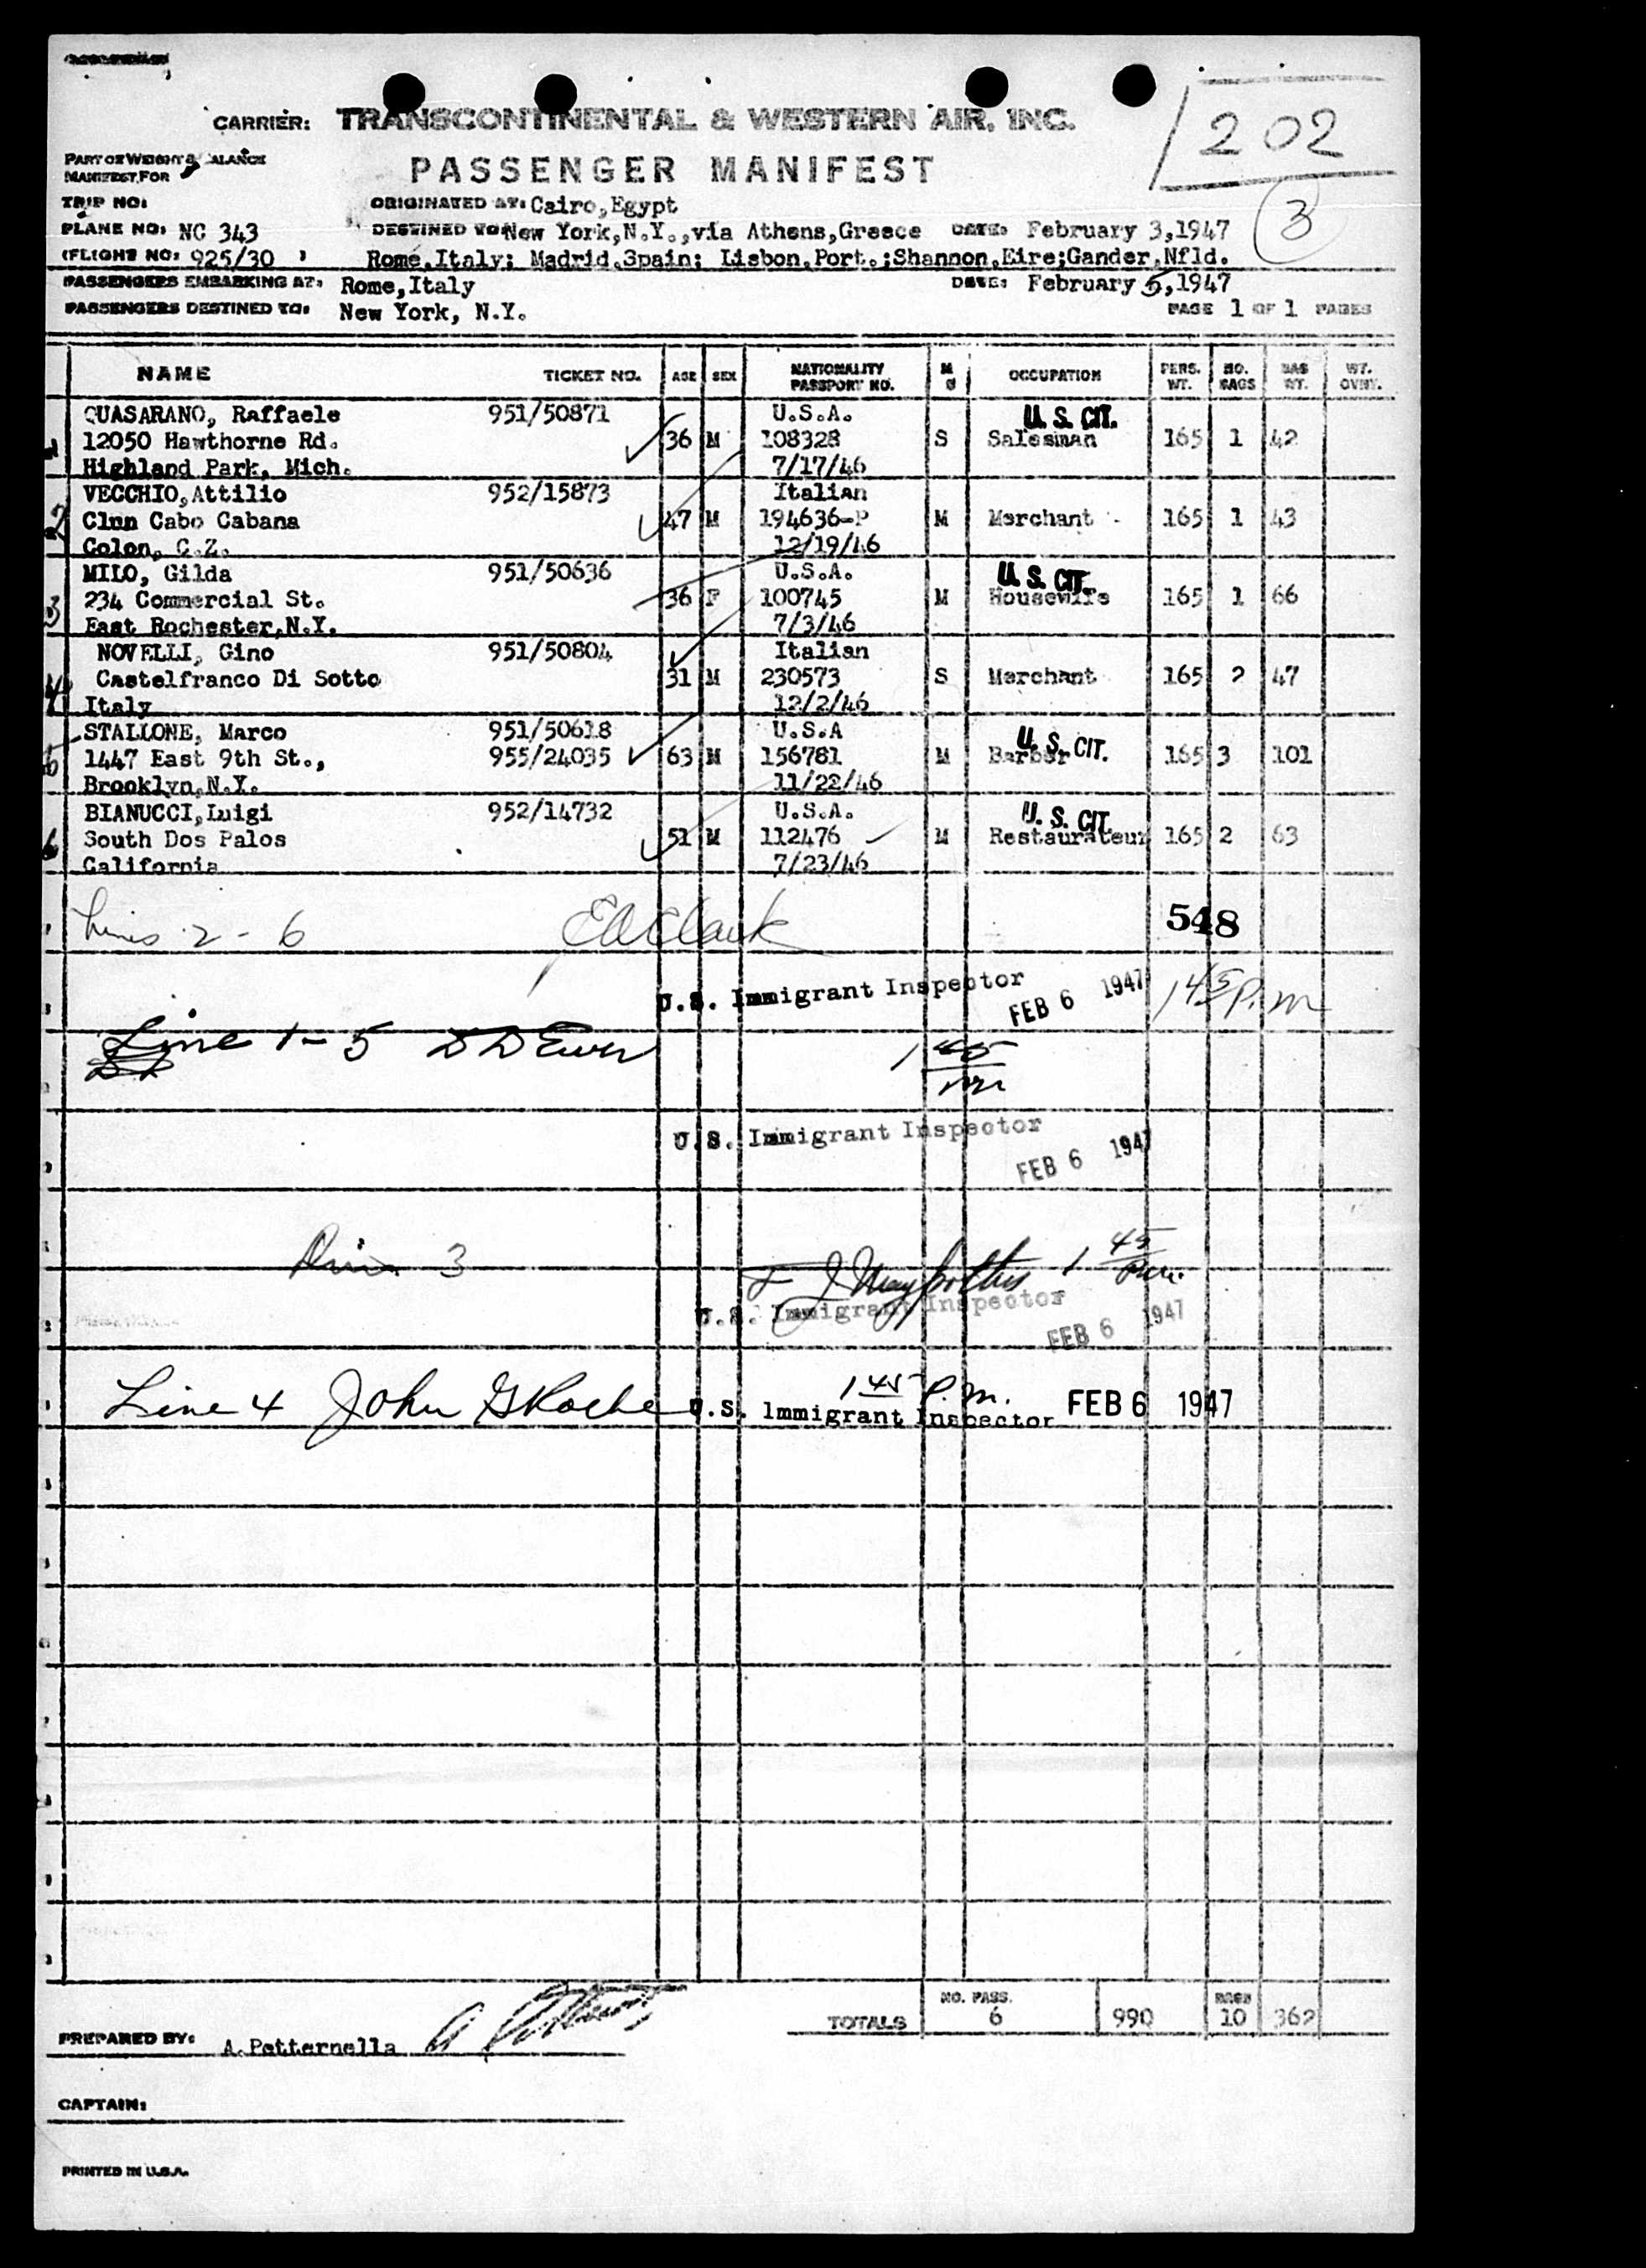 CARRIER: TRANSCONTINENTAL & WESTERN AIR, INC.
202
PART OF WEIGHT & BALANCE
MANIFEST FOR
PASSENGER MANIFEST
3
TRIP NO:
ORIGINATED AT: Cairo,Egypt
PLANE NO: NC 343
DESTINED TO: New York,N.Y.,via Athens,Greece DATE: February 3,1947
(FLIGHT NO: 925/30 )
Rome,Italy; Madrid,Spain; Lisbon,Port.;Shannon,Eire;Gander,Nfld.
PASSENGERS EMBARKING AT: Rome,Italy DATE: February 5,1947
PASSENGERS DESTINED TO: New York, N.Y. PAGE 1 OF 1 PAGES
NAME TICKET NO. AGE SEX NATIONALITY PASSPORT NO. M S OCCUPATION PERS. WT. NO. BAGS BAG WT. WT. OVNT.
QUASARANO, Raffaele 951/50871 U.S.A. U. S. CIT.
1 12050 Hawthorne Rd. 36 M 108328 S Salesman 165 1 42
Highland Park, Mich. 7/17/46
VECCHIO,Attilio 952/15873 Italian
2 Clnn Cabo Cabana 47 M 194636-P M Merchant - 165 1 43
Colon, C.Z. 12/19/46
MILO, Gilda 951/50636 U.S.A. U. S. CIT.
3 234 Commercial St. 36 F 100745 M Housewife 165 1 66
East Rochester,N.Y. 7/3/46
NOVELLI, Gino 951/50804 Italian
4 Castelfranco Di Sotto 31 M 230573 S Merchant 165 2 47
Italy 12/2/46
STALLONE, Marco 951/50618 U.S.A U. S. CIT.
5 1447 East 9th St., 955/24035 63 M 156781 M Barber 165 3 101
Brooklyn,N.Y. 11/22/46
BIANUCCI,Luigi 952/14732 U.S.A. U. S. CIT.
6 South Dos Palos 51 M 112476 M Restaurateur 165 2 63
California 7/23/46
Lines 2 - 6 E A Clark 548
U.S. Immigrant Inspector FEB 6 1947 1 45 P.m
Line 1-5 1 45 pm
U.S. Immigrant Inspector FEB 6 1947
3 1 45 P.m.
U.S. Immigrant Inspector FEB 6 1947
Line 4 John G Roche 1 45 P.m.
U.S. Immigrant Inspector FEB 6 1947
NO. PASS. BAGS
TOTALS 6 990 10 362
PREPARED BY: A.Petternella
CAPTAIN:
PRINTED IN U.S.A.